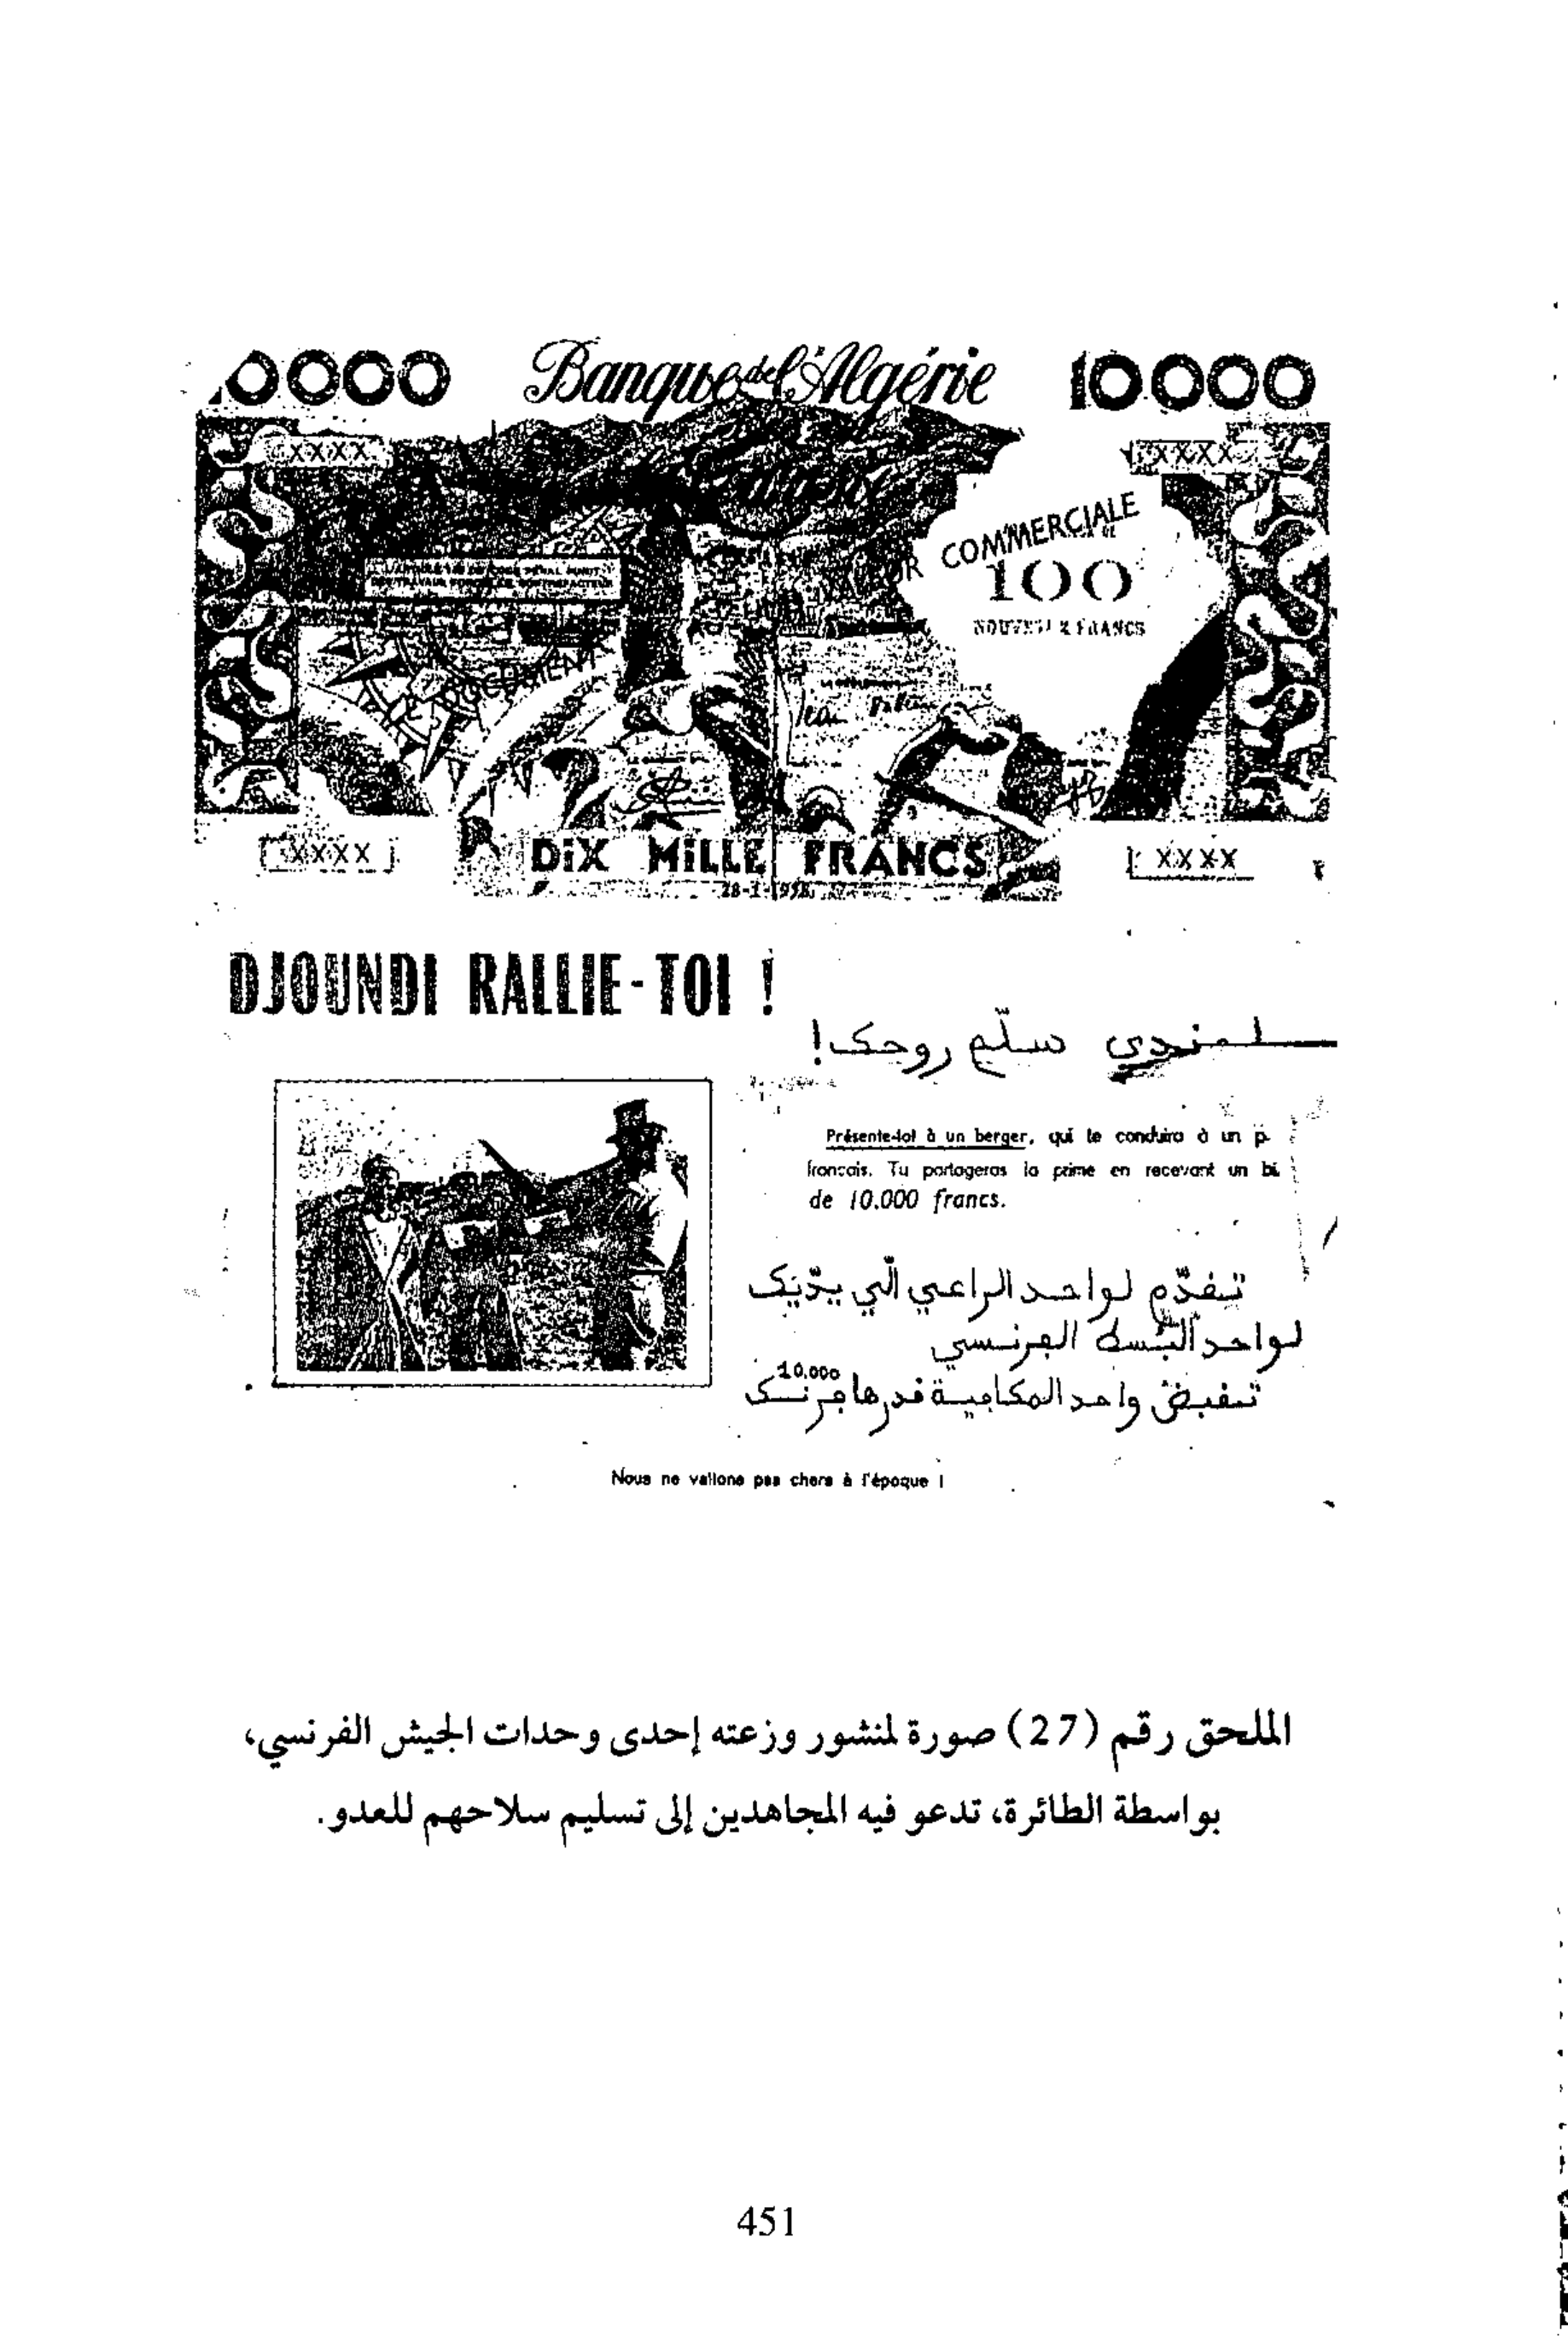 0000 Banque de l'Algérie 10000
XXXX XXXX
COMMERCIALE
100
NOUVEAUX FRANCS
DOCUMENT
XXXX DiX MiLLE FRANCS XXXX
DJOUNDI RALLIE-TOI !
سلّم روحك!
Présente-toi à un berger, qui te conduira à un p
français. Tu partageras la prime en recevant un bi
de 10.000 francs.
تـفدّم لواحد الراعي الّي يدّيك
لواحد البُسط الفرنسي
10.000
تـفبض واحد المكافية فدرها فرنك
Nous ne valions pas chers à l'époque !
الملحق رقم (27) صورة لمنشور وزعته إحدى وحدات الجيش الفرنسي،
بواسطة الطائرة، تدعو فيه المجاهدين إلى تسليم سلاحهم للعدو.
451